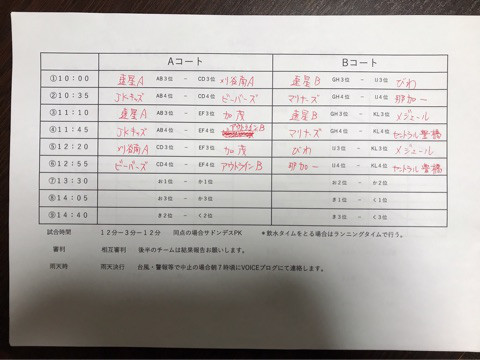 Aコート Bコート
①10:00 東星A AB3位 - CD3位 刈谷南A 東星B GH3位 - IJ3位 びわ
②10:35 JKキッズ AB4位 - CD4位 ビーバーズ マリナーズ GH4位 - IJ4位
③11:10 東星A AB3位 - EF3位 加茂 東星B GH3位 - KL3位 メジェール
④11:45 JKキッズ AB4位 - EF4位 アウトラインB マリナーズ GH4位 - KL4位 セントラル豊橋
⑤12:20 刈谷南A CD3位 - EF3位 加茂 びわ IJ3位 - KL3位 メジェール
⑥12:55 ビーバーズ CD4位 - EF4位 アウトラインB IJ4位 - KL4位 セントラル豊橋
⑦13:30 お1位 - か1位 お2位 - か2位
⑧14:05 お3位 - か3位 き1位 - く1位
⑨14:40 き2位 - く2位 き3位 - く3位
試合時間 12分ー3分ー12分 同点の場合サドンデスPK *飲水タイムをとる場合はランニングタイムで行う。
審判 相互審判 後半のチームは結果報告お願いします。
雨天時 雨天決行 台風・警報等で中止の場合朝7時頃にVOICEブログにて連絡します。